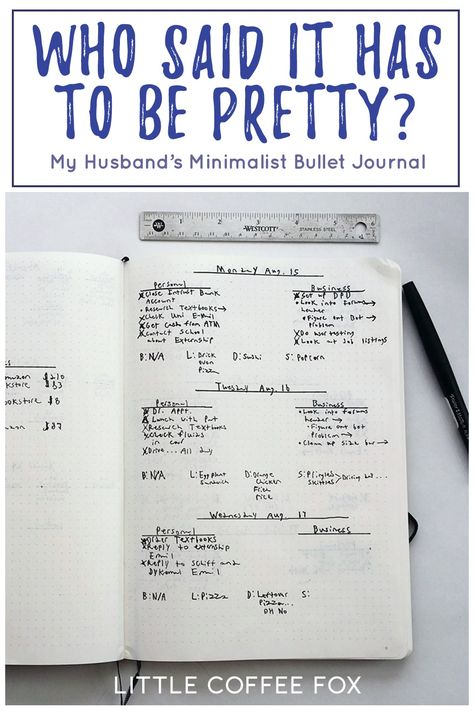 WHO SAID IT HAS
TO BE PRETTY?
My Husband's Minimalist Bullet Journal
WESTCOTT
STAINLESS STEEL
Monday Aug. 15
Personal
Close Intrust Bank
Account
Research Textbooks→
Check Uni E-Mail
Get Cash from ATM
Contact School
about Externship
Business
Set up DPD
Look into forums→
header
Figure out Bot→
Problem
Do user testing
Look at Job listings
B: N/A L: Brick
oven
Pizza
D: Sushi S: Popcorn
Tuesday Aug. 16
Personal
Dr. Appt.
Lunch with Pat
Research Textbooks
Check fluids
in car
Drive... All day
Business
Look into forums
header→
Figure out bot
Problem→
Clean up side bar→
B: N/A L: Eggplant
Sandwich
D: Orange
Chicken
Fried
Rice
S: Pringles
Skittles
Driving but...
Wednesday Aug. 17
Personal
Order Textbooks
Reply to externship
Email
Reply to Schiff and
Email
Business
B: N/A L: Pizza D: Leftover
Pizza...
Oh No
S:
$210
kstore $3
ookstore $8
$27
LITTLE COFFEE FOX